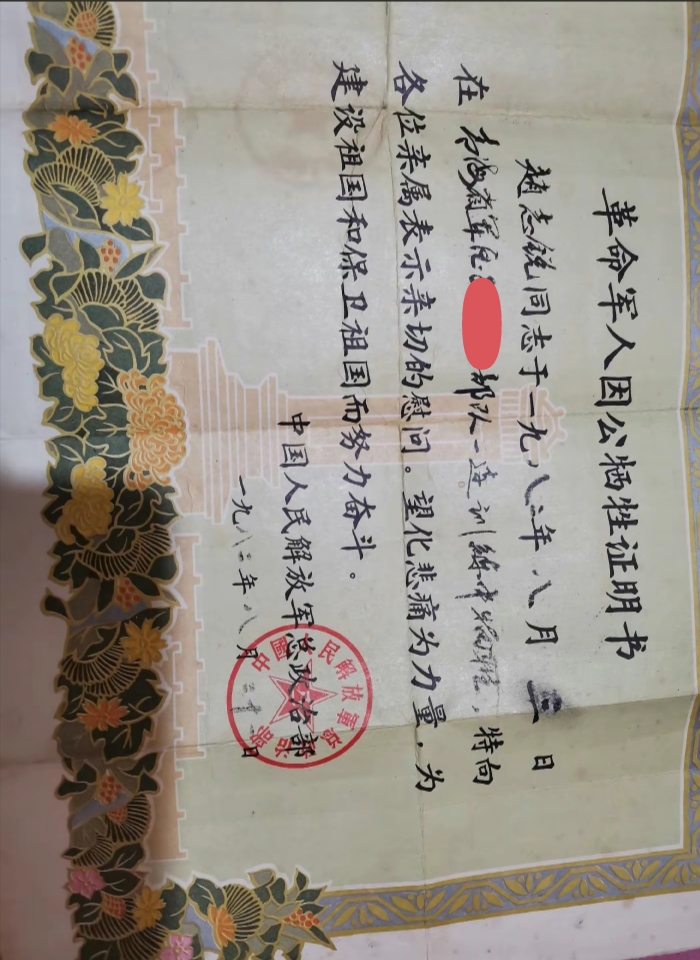 革命军人因公牺牲证明书
赵志锐同志于一九八二年八月 日
在青海省军区 部队一连训练中 ，特向
各位亲属表示亲切的慰问。望化悲痛为力量，为
建设祖国和保卫祖国而努力奋斗。
中国人民解放军总政治部
一九八二年八月 日